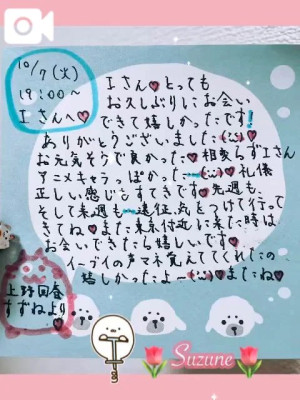 10/7(火)
19:00〜
Iさんへ♥
Iさん♥とっても
お久しぶりにお会い
できて嬉しかったです!
ありがとうございました(;;)♥
お元気そうで良かった♥相変らずIさん
アニメキャラっぽかった〜(;;)♥礼儀
正しい感じもすてきです♥先週も、
そして来週も〜遠征気をつけて行って
きてね♥また東京付近に来た時は
お会いできたら嬉しいです♥
イーブイの声マネ覚えててくれたの、
嬉しかったよー(;;)♥またね♥
上野回春
すずねより
♥
Suzune